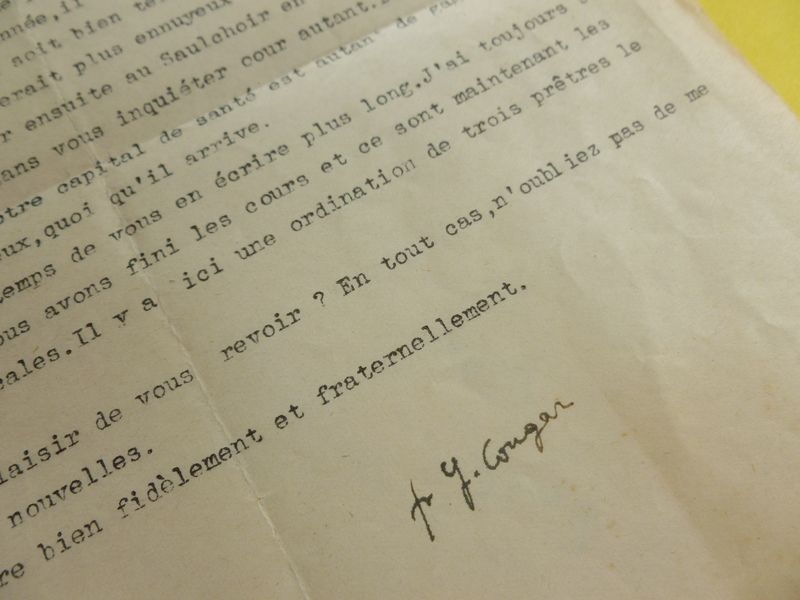 nnée, il
soit bien te
erait plus ennuyeux
r ensuite au Saulchoir en
ans vous inquiéter cour autant.
otre capital de santé est autant de
eux,quoi qu'il arrive.
temps de vous en écrire plus long.J'ai toujours
ous avons fini les cours et ce sont maintenant les
cales.Il y a ici une ordination de trois prêtres le
laisir de vous revoir ? En tout cas,n'oubliez pas de me
nouvelles.
re bien fidèlement et fraternellement.
fr Y. Congar